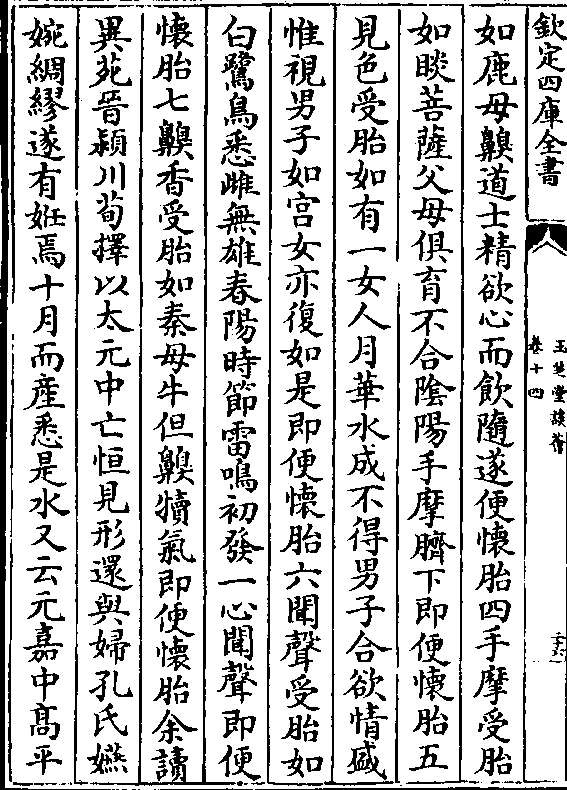 欽定四庫全書
卷十四
如鹿母齅道士精欲心而飲隨遂便懷胎四手摩受胎
如睒菩薩父母俱育不合陰陽手摩臍下即便懷胎五
見色受胎如有一女人月華水成不得男子合欲情盛
惟視男子如宫女亦復如是即便懷胎六聞聲受胎如
白鷺鳥悉雌無雄春陽時節雷鳴初發一心聞聲即便
懷胎七齅香受胎如秦母牛但齅犢氣即便懷胎余讀
異苑晉潁川荀擇以太元中亡恒見形還與婦孔氏嬿
婉綢繆遂有姙焉十月而産悉是水又云元嘉中髙平